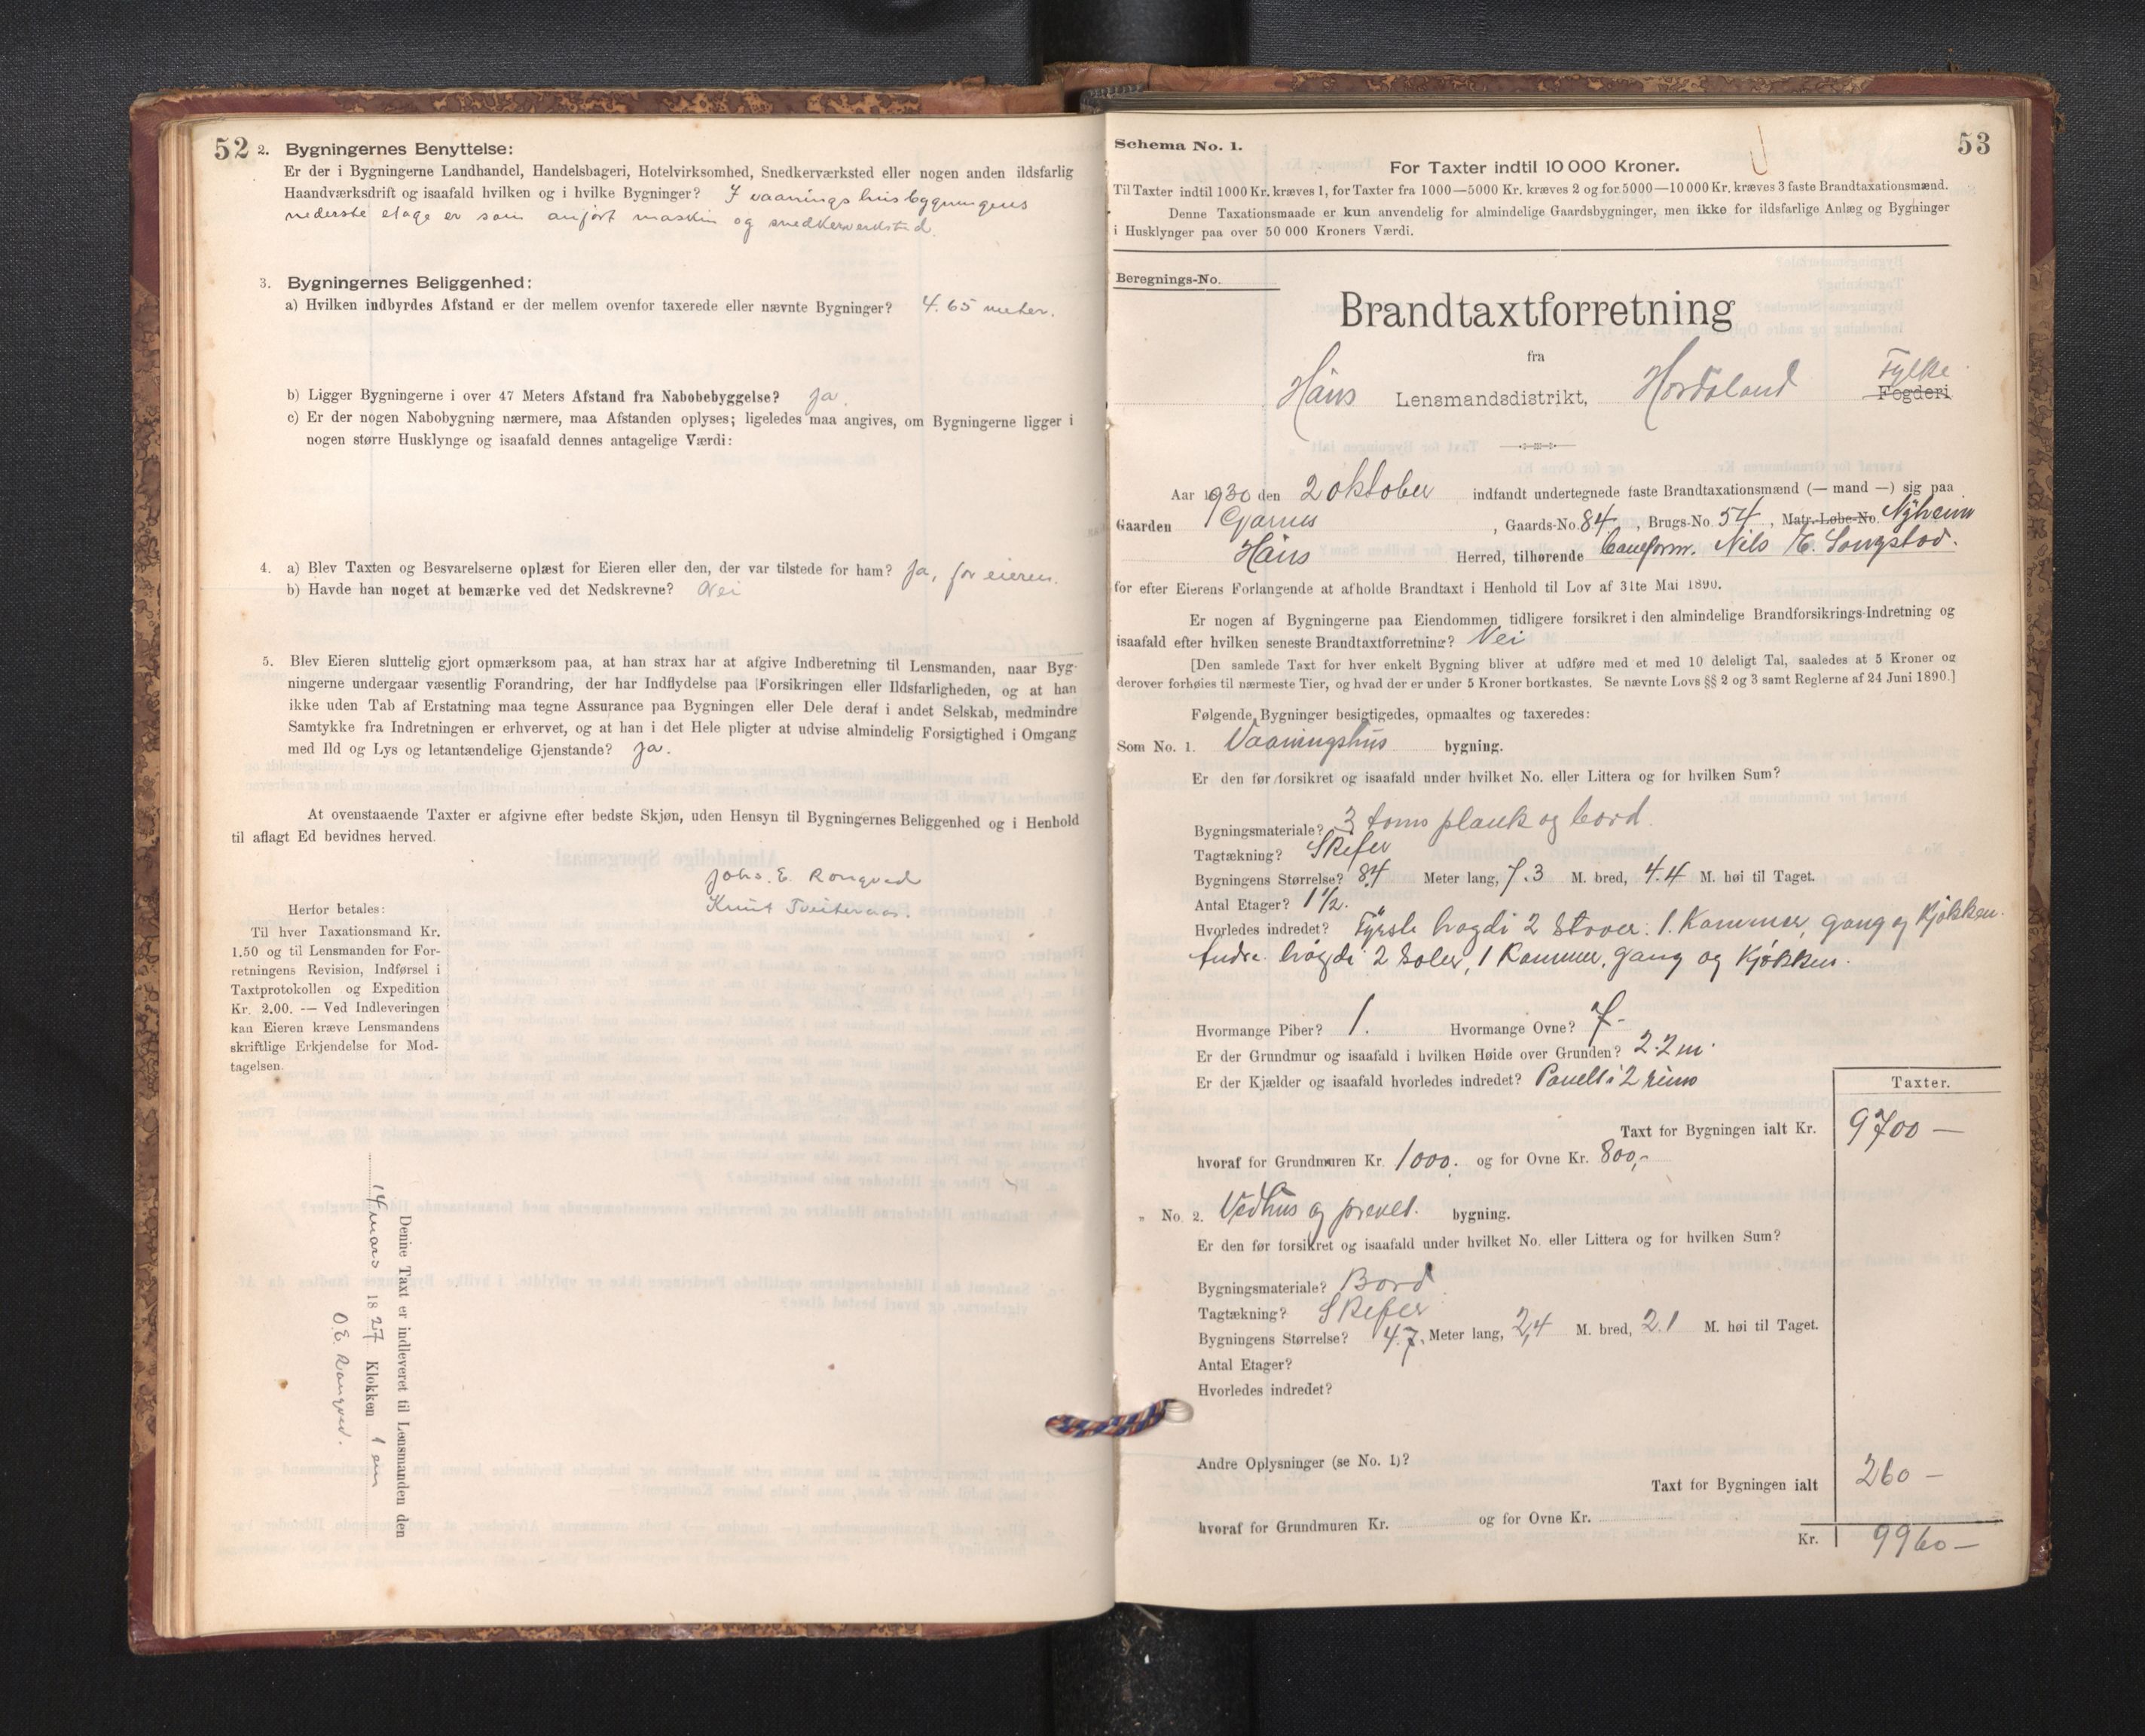 52
2. Bygningernes Benyttelse:
Er der i Bygningerne Landhandel, Handelsbageri, Hotelvirksomhed, Snedkerværksted eller nogen anden ildsfarlig
Haandværksdrift og isaafald hvilken og i hvilke Bygninger? I vaaningshusbygningens
nederste etage er som anført maskin og snedkerverksted.
3. Bygningernes Beliggenhed:
a) Hvilken indbyrdes Afstand er der mellem ovenfor taxerede eller nævnte Bygninger? 4.65 meter.
b) Ligger Bygningerne i over 47 Meters Afstand fra Nabobebyggelse? Ja.
c) Er der nogen Nabobygning nærmere, maa Afstanden oplyses; ligeledes maa angives, om Bygningerne ligger i
nogen større Husklynge og isaafald dennes antagelige Værdi:
4. a) Blev Taxten og Besvarelserne oplæst for Eieren eller den, der var tilstede for ham? Ja, for eieren.
b) Havde han noget at bemærke ved det Nedskrevne? Nei
5. Blev Eieren sluttelig gjort opmærksom paa, at han strax har at afgive Indberetning til Lensmanden, naar Byg-
ningerne undergaar væsentlig Forandring, der har Indflydelse paa Forsikringen eller Ildsfarligheden, og at han
ikke uden Tab af Erstatning maa tegne Assurance paa Bygningen eller Dele deraf i andet Selskab, medmindre
Samtykke fra Indretningen er erhvervet, og at han i det Hele pligter at udvise almindelig Forsigtighed i Omgang
med Ild og Lys og letantændelige Gjenstande? Ja.
At ovenstaaende Taxter er afgivne efter bedste Skjøn, uden Hensyn til Bygningernes Beliggenhed og i Henhold
til aflagt Ed bevidnes herved.
Johs. E. Rongved
Knut Tveiteraas.
Herfor betales:
Til hver Taxationsmand Kr.
1.50 og til Lensmanden for For-
retningens Revision, Indførsel i
Taxtprotokollen og Expedition
Kr. 2.00. — Ved Indleveringen
kan Eieren kræve Lensmandens
skriftlige Erkjendelse for Mod-
tagelsen.
Denne Taxt er indleveret til Lensmanden den
14 mars 1827 Klokken 1 em
O.E. Rongved.
53
Schema No. 1.
For Taxter indtil 10 000 Kroner.
Til Taxter indtil 1000 Kr. kræves 1, for Taxter fra 1000—5000 Kr. kræves 2 og for 5000—10 000 Kr. kræves 3 faste Brandtaxationsmænd.
Denne Taxationsmaade er kun anvendelig for almindelige Gaardsbygninger, men ikke for ildsfarlige Anlæg og Bygninger
i Husklynger paa over 50 000 Kroners Værdi.
Beregnings-No.
Brandtaxtforretning
fra
Haus Lensmandsdistrikt, Hordaland Fylke
Fogderi
Aar 1930 den 2 oktober indfandt undertegnede faste Brandtaxationsmænd (— mand —) sig paa
Gaarden Garnes, Gaards-No. 84, Brugs-No. 54, Matr.-Løbe-No. Nyheim
Haus Herred, tilhørende Baneform. Nils E.
for efter Eierens Forlangende at afholde Brandtaxt i Henhold til Lov af 31te Mai 1890.
Er nogen af Bygningerne paa Eiendommen tidligere forsikret i den almindelige Brandforsikrings-Indretning og
isaafald efter hvilken seneste Brandtaxtforretning? Nei
[Den samlede Taxt for hver enkelt Bygning bliver at udføre med et med 10 deleligt Tal, saaledes at 5 Kroner og
derover forhøies til nærmeste Tier, og hvad der er under 5 Kroner bortkastes. Se nævnte Lovs §§ 2 og 3 samt Reglerne af 24 Juni 1890.]
Følgende Bygninger besigtigedes, opmaaltes og taxeredes:
Som No. 1. Vaaningshus bygning.
Er den før forsikret og isaafald under hvilket No. eller Littera og for hvilken Sum?
Bygningsmateriale? 3 toms plank og bord.
Tagtækning? Skifer
Bygningens Størrelse? 8.4 Meter lang, 7.3 M. bred, 4.4 M. høi til Taget.
Antal Etager? 1 1/2.
Hvorledes indredet? Fyrste høgdi 2 Stover. 1. Kammer, gang og Kjøkken.
Andre høgdi 2 Soler, 1 Kammer, gang og Kjøkken.
Hvormange Piber? 1. Hvormange Ovne? 7-
Er der Grundmur og isaafald i hvilken Høide over Grunden? 2.2 m.
Er der Kjælder og isaafald hvorledes indredet? Panelt i 2 rums
Taxter.
Taxt for Bygningen ialt Kr. 9700 —
hvoraf for Grundmuren Kr. 1000. og for Ovne Kr. 800,-
" No. 2. Vedhus og privet. bygning.
Er den før forsikret og isaafald under hvilket No. eller Littera og for hvilken Sum?
Bygningsmateriale? Bord
Tagtækning? Skifer
Bygningens Størrelse? 4.7. Meter lang, 2,4 M. bred, 2.1 M. høi til Taget.
Antal Etager?
Hvorledes indredet?
Andre Oplysninger (se No. 1)?
Taxt for Bygningen ialt 260 —
hvoraf for Grundmuren Kr. og for Ovne Kr.
Kr. 9960 —